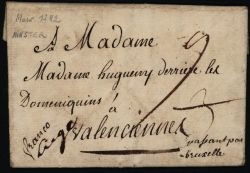 Mars 1792
MUNSTER
A Madame
Madame hugueny derriere les
Domeniquins à
Valenciennes
franco
passant par
bruxelle